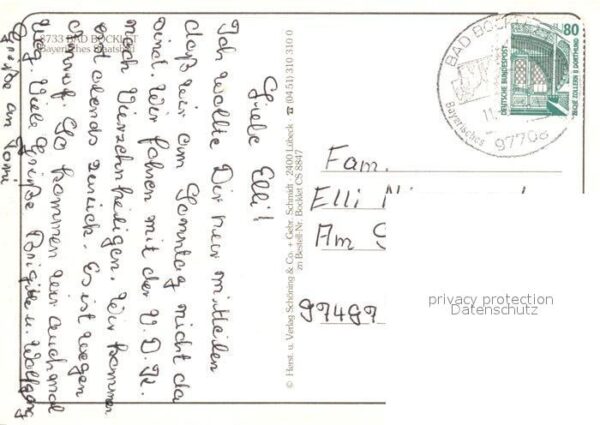 8733 BAD BOCKLET
Bayerisches Staatsbad
Liebe Elli!
Ich wollte Dir nur mitteilen
daß wir am Sonntag nicht da
sind. Wir fahren mit der V.D.K.
nach Vierzehnheiligen. Wir kommen
erst abends zurück. Es ist wegen
Anruf. So kommen wir auch mal
weg. Viele Grüße Brigitte u. Wolfgang
Grüße an Toni
© Herst. u. Verlag Schöning & Co. + Gebr. Schmidt · 2400 Lübeck · ☎ (04 51) 310 310 0
zu Bestell-Nr. Bocklet CS 8847
BAD BOCKLET
Bayerisches
11.
97708
80
DEUTSCHE BUNDESPOST
ZECHE ZOLLERN II DORTMUND
Fam.
Elli
Am
97497
privacy protection
Datenschutz